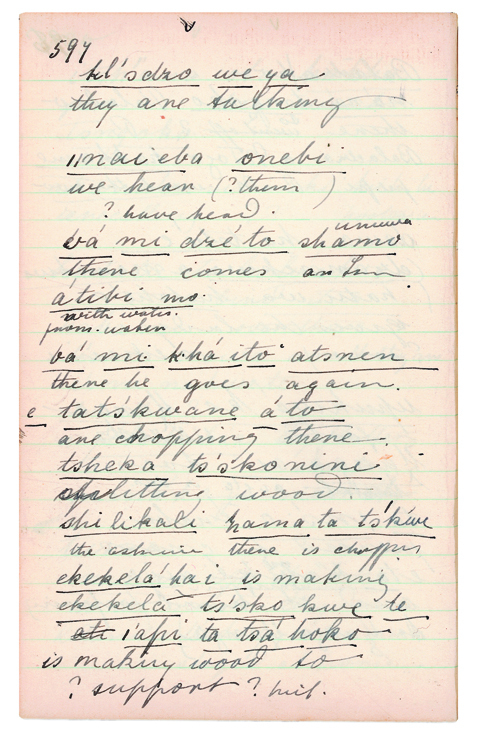 597
kl'sdzo we ya
they are talking
ǁnai eba onebi
we hear (? them )
? have heard.
umuwa
bá mi dzé to shamo
there comes an Inn
átibi mo.
with water.
from water
bá mi khá ito atsnen
there he goes again.
e tatśkwane á to
are chopping there.
tsheka ts'sko nini
splitting wood.
shi likali hama ta tśkwe
the ashurin there is choppin
ekekelá hai is making
ekekela ts'sko kwe te
i'api ta tsá hoko
is making wood to
? support ? hut.